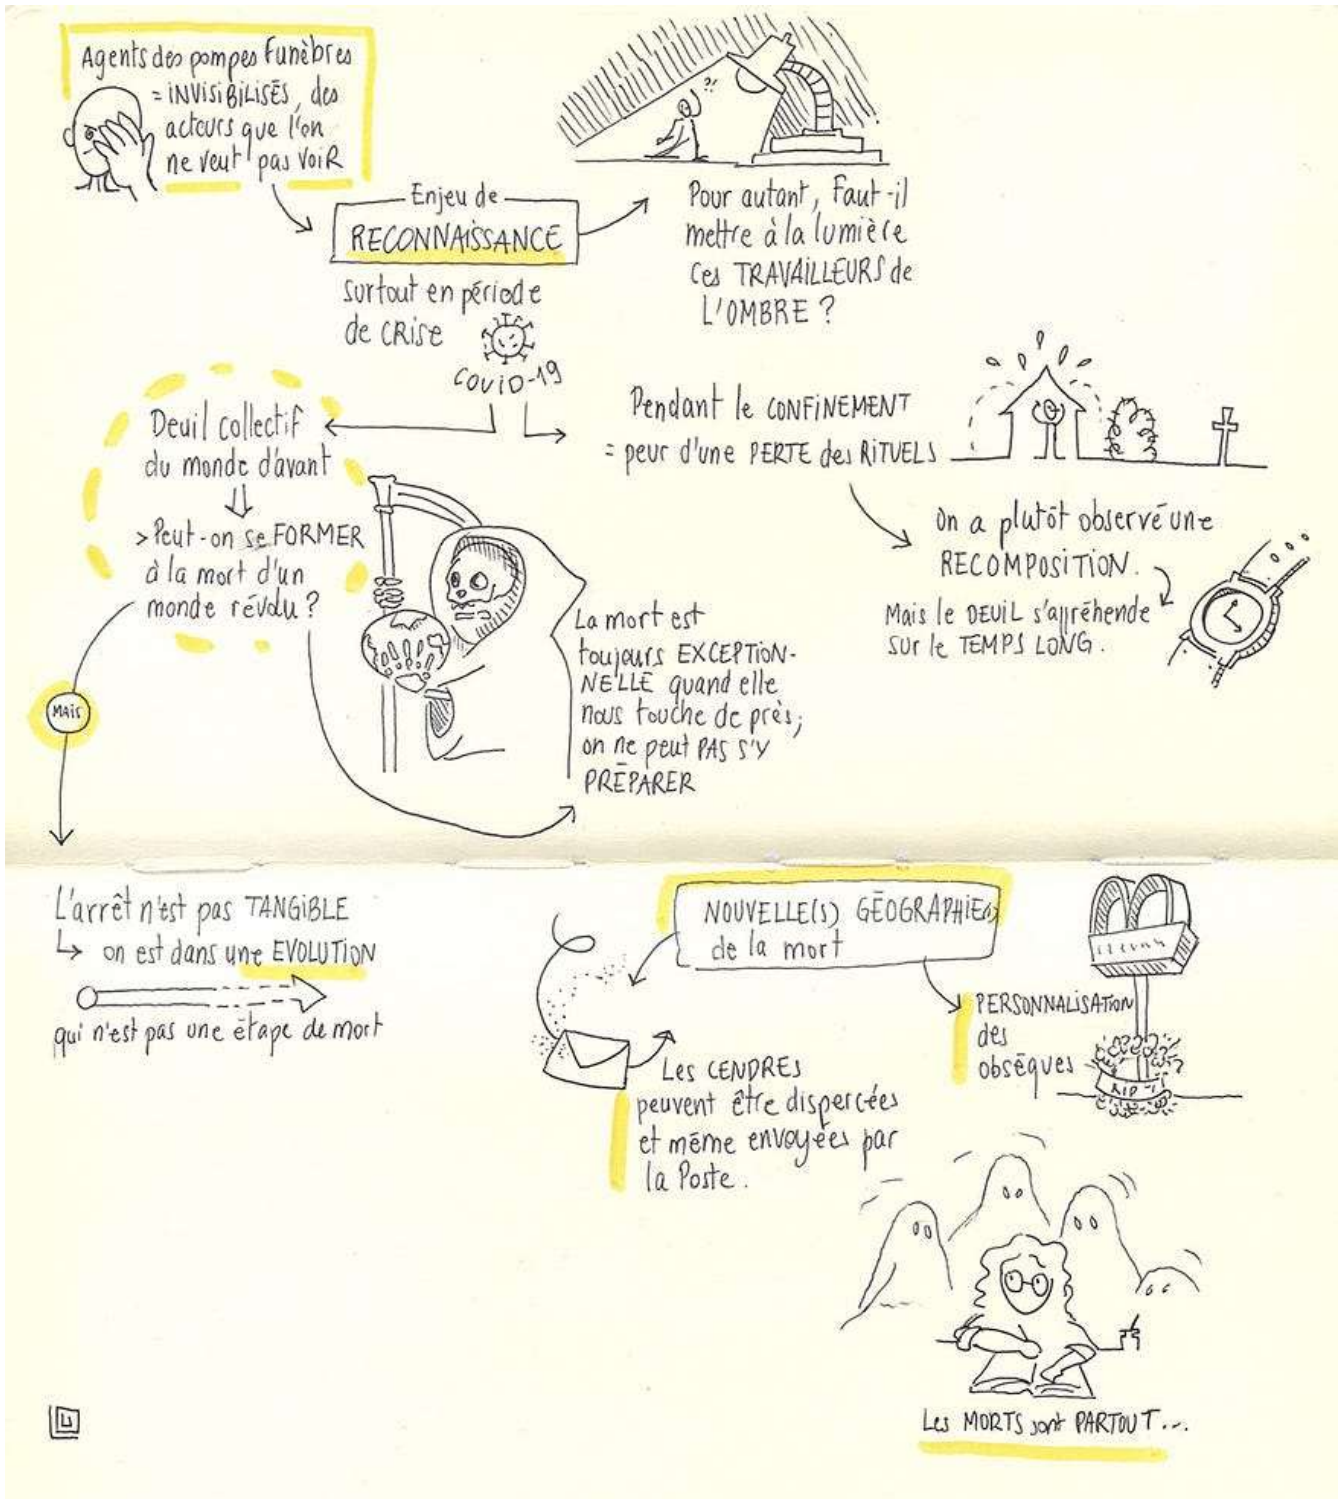 Agents des pompes funèbres
= INVISIBILISÉS, des
acteurs que l'on
ne veut pas VOIR
?!
Enjeu de
RECONNAISSANCE
surtout en période
de crise
COVID-19
Pour autant, Faut-il
mettre à la lumière
ces TRAVAILLEURS de
L'OMBRE ?
Deuil collectif
du monde d'avant
> Peut-on se FORMER
à la mort d'un
monde révolu ?
Pendant le CONFINEMENT
= peur d'une PERTE des RITUELS
On a plutôt observé une
RECOMPOSITION.
Mais le DEUIL s'appréhende
sur le TEMPS LONG.
La mort est
toujours EXCEPTION-
NELLE quand elle
nous touche de près;
on ne peut PAS S'Y
PRÉPARER
MAIS
L'arrêt n'est pas TANGIBLE
on est dans une EVOLUTION
qui n'est pas une étape de mort
NOUVELLE(S) GÉOGRAPHIE(S)
de la mort
PERSONNALISATION
des
obsèques
RIP
Les CENDRES
peuvent être dispercées
et même envoyées par
la Poste.
Les MORTS sont PARTOUT...